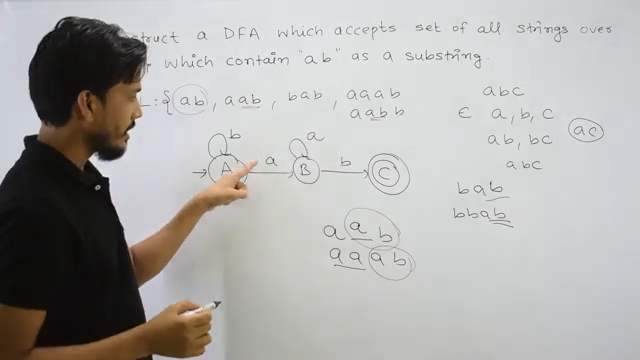 struct a DFA which accepts set of all strings over
which contain "ab" as a substring.
L: { ab, aab, bab, aaab
aabb
abc
ϵ a, b, c
ab, bc ac
abc
bab
bbab
b a
A a B b C
a a b
a a a b